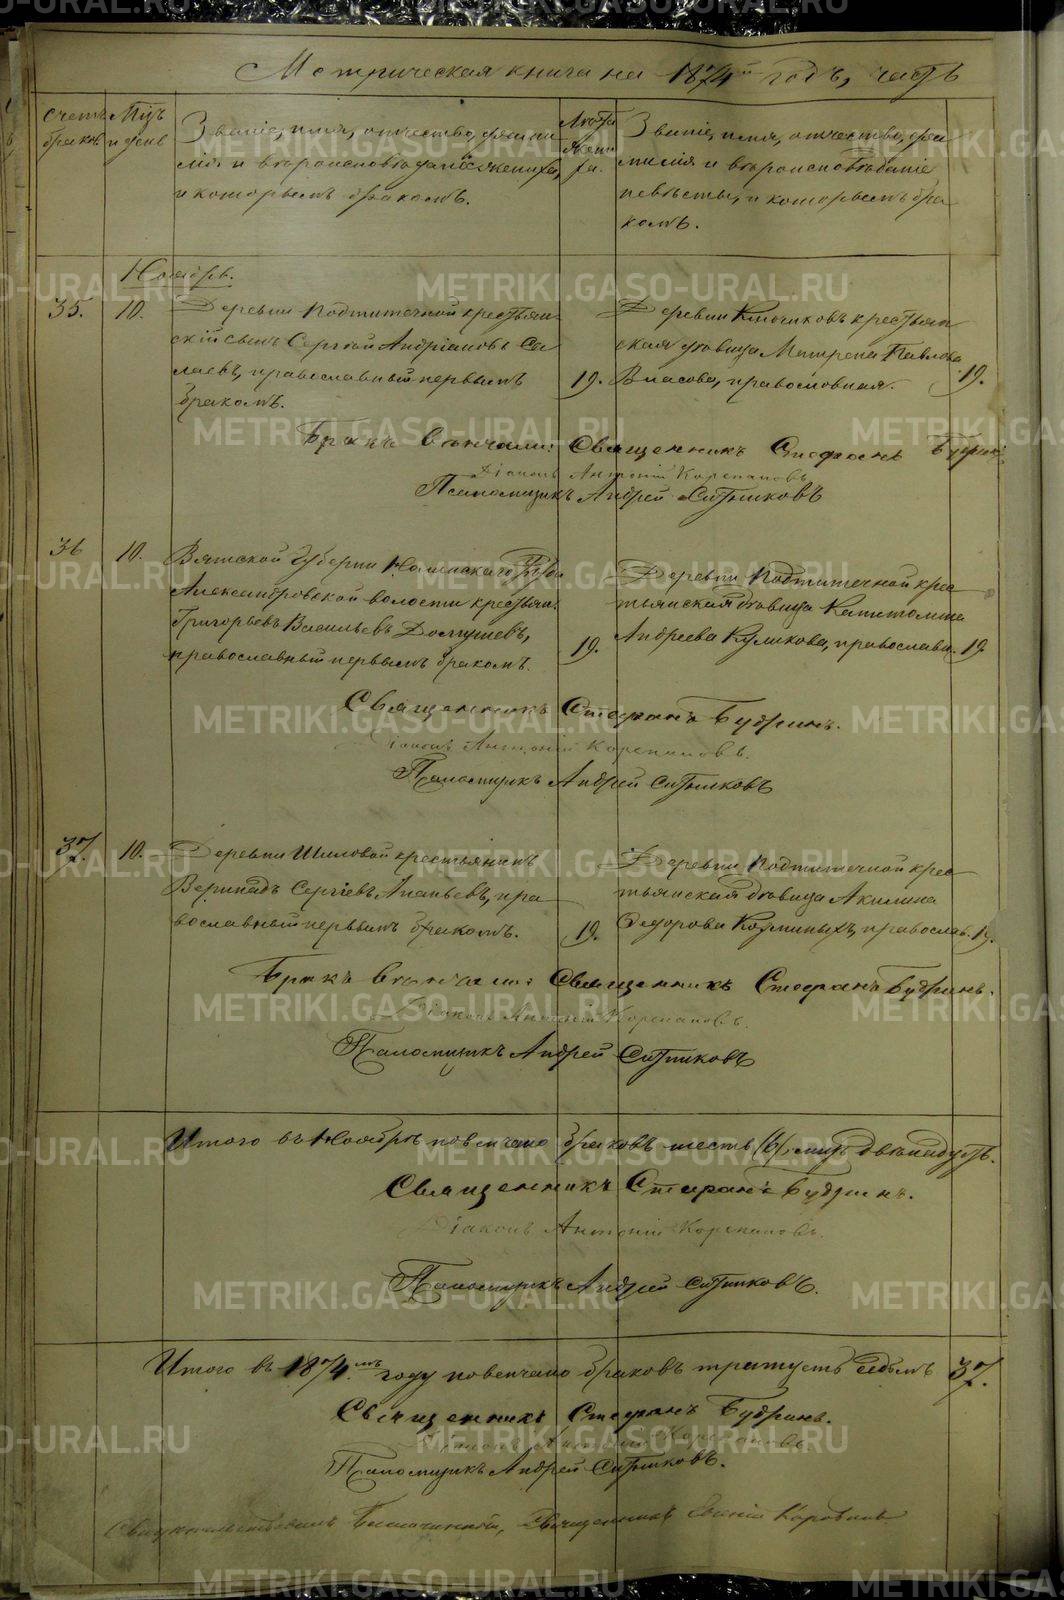 Метрическая книга на 1874й годъ, часть
Счетъ браковъ
Мцъ и день
Званіе, имя, отчество, фами
лія и вѣроисповѣданіе жениха,
и которымъ бракомъ.
Лѣта жениха.
Званіе, имя, отчество, фа
милія и вѣроисповѣданіе
невѣсты, и которымъ бра
комъ.
Ноябрь.
35.
10.
Деревни Подтитечной крестьян
скій сынъ Сергѣй Андріановъ Са
лаевъ, православный первымъ
бракомъ.
19.
Деревни Ключиковъ крестьян
ская дѣвица Матрена Павлова
Власова, православная.
19.
Бракъ вѣнчали: Священникъ Стефанъ Будринъ
Діаконъ Антоній Корепановъ
Псаломщикъ Андрей Ситниковъ
36
10.
Вятской Губерни
Александровской волости крестьян.
Григорьевъ Васильевъ
православный первымъ бракомъ.
19.
Деревни Подтитечной крес
тьянская дѣвица Капитолина
Андреева Куликова, православн.
19.
Священникъ Стефанъ Будринъ.
Діаконъ Антоній Корепановъ.
Псаломщикъ Андрей Ситниковъ
37.
10.
Деревни Шиловой крестьянинъ
Сергіевъ Ананьевъ, пра
вославный первымъ бракомъ.
19.
Деревни Подтитечной крес
тьянская дѣвица Акилина
Федорова Козминыхъ, православ.
19.
Бракъ вѣнчали: Священникъ Стефанъ Будринъ.
Діаконъ Антоній Корепановъ.
Псаломщикъ Андрей Ситниковъ
Итого въ Ноябрѣ повенчано браковъ шесть (6), лицъ двенадцать.
Священникъ Стефанъ Будринъ.
Діаконъ Антоній Корепановъ.
Псаломщикъ Андрей Ситниковъ.
Итого въ 1874мъ году повенчано браковъ тритцать седьмъ 37.
Священникъ Стефанъ Будринъ.
Діаконъ Антоній Корепановъ.
Псаломщикъ Андрей Ситниковъ.
Благочинный, Священникъ Коровинъ
METRIKI.GASO-URAL.RU